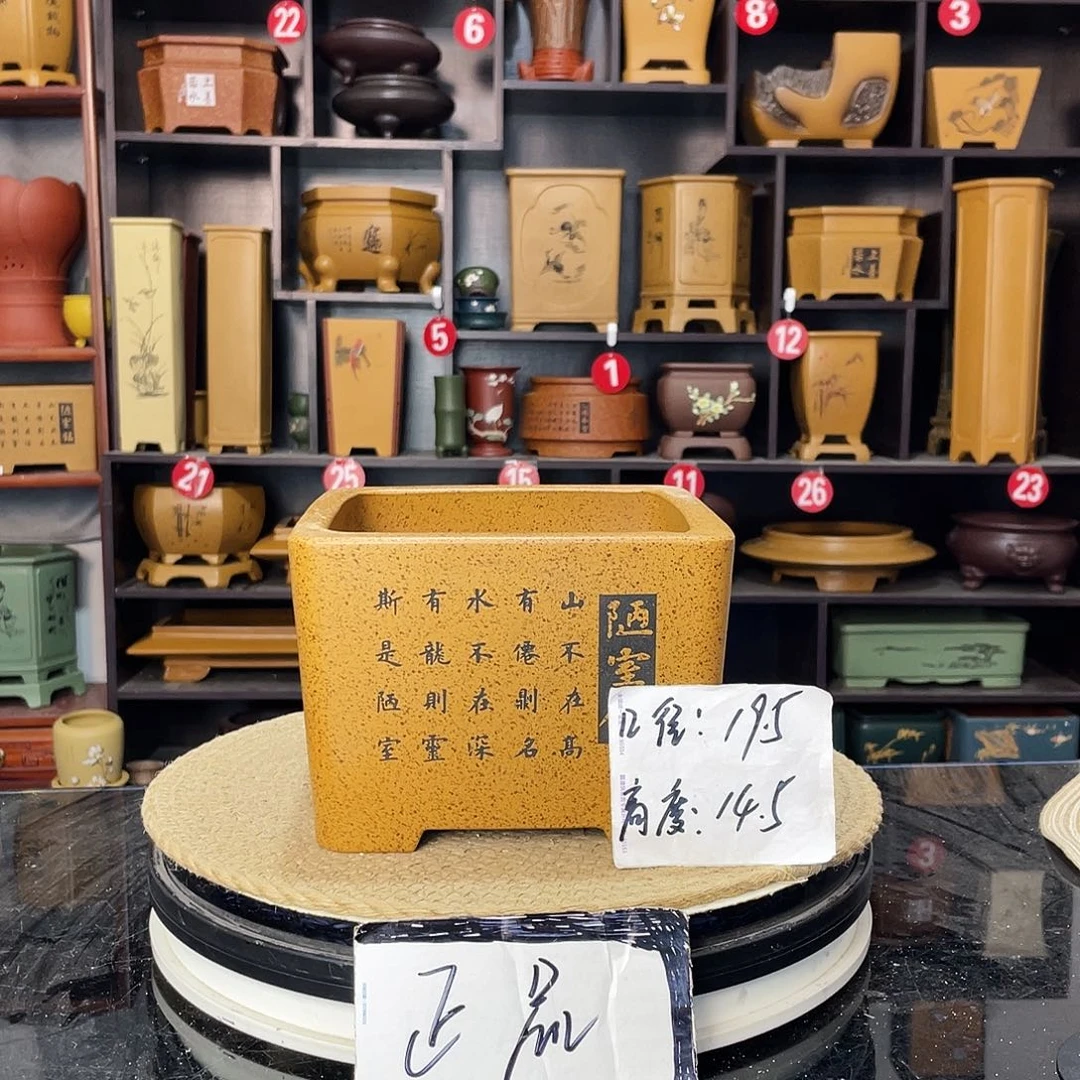 22
6
8
3
5
1
12
21
25
15
11
26
23
陋室
山不在高
有僊則名
水不在深
有龍則靈
斯是陋室
口径：19.5
高度：14.5
正品